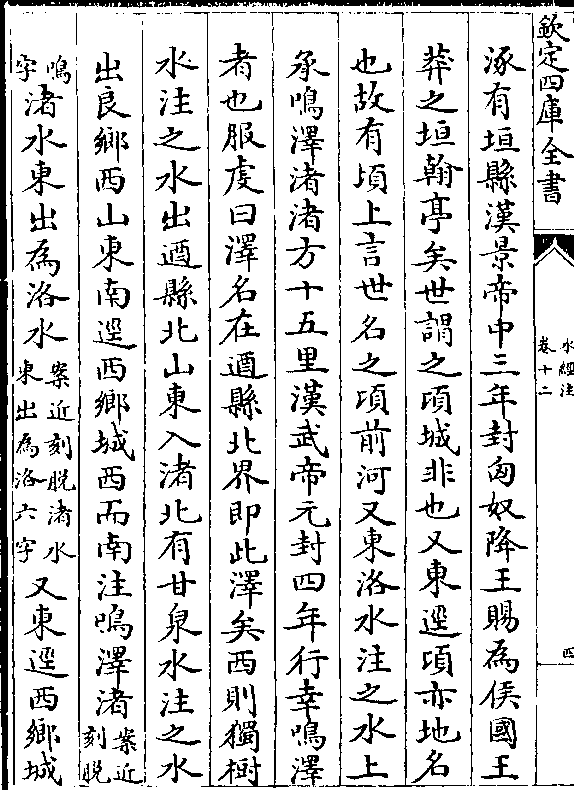 欽定四庫全書
水經注
卷十二
四
涿有垣縣漢景帝中三年封匈奴降王賜為侯國王
葬之垣翰亭矣世謂之頃城非也又東逕頃亦地名
也故有頃上言世名之頃前河又東洛水注之水上
承鳴澤渚渚方十五里漢武帝元封四年行幸鳴澤
者也服虔曰澤名在遒縣北界即此澤矣西則獨樹
水注之水出遒縣北山東入渚北有甘泉水注之水
出良鄉西山東南逕西鄉城西而南注鳴澤渚案近刻脱
鳴字渚水東出為洛水案近刻脱渚水東出為洛六字又東逕西鄉城